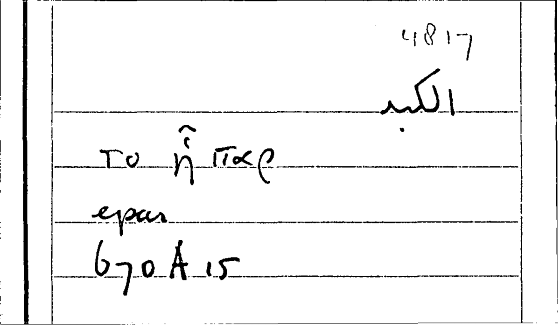 4817
الكبد
το ἧπαρ
epar
670 A 15